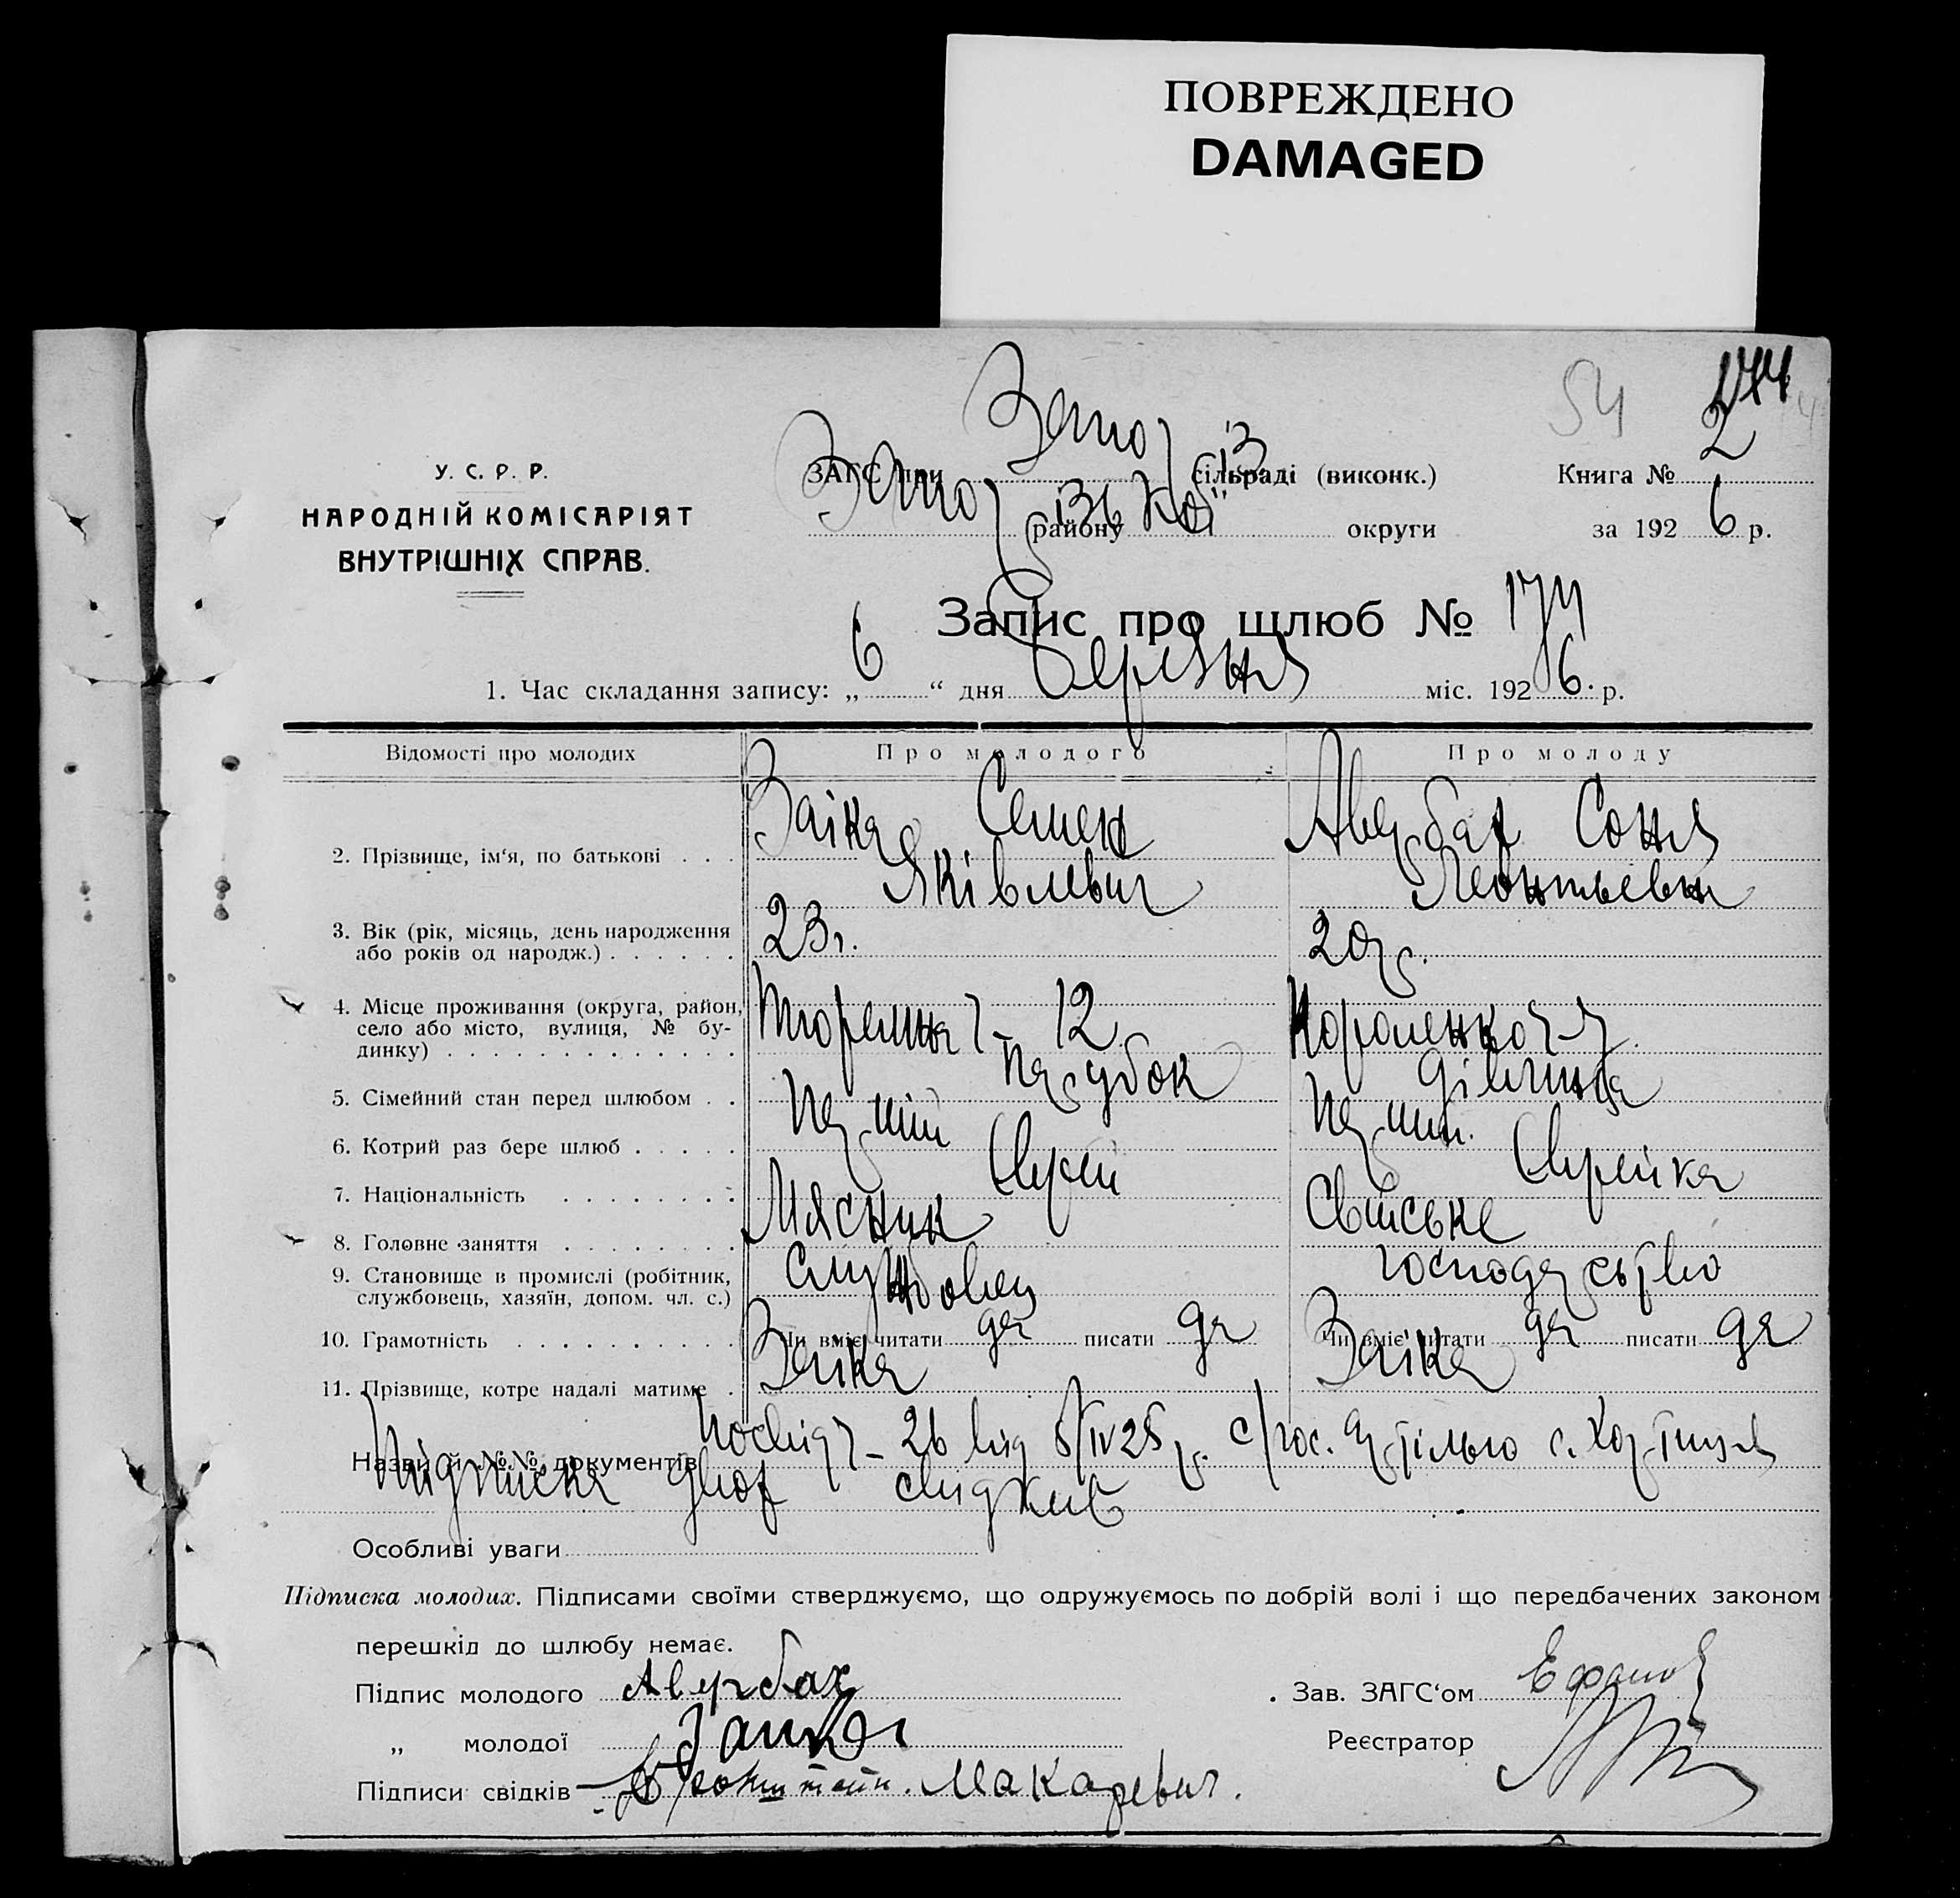 ПОВРЕЖДЕНО
DAMAGED
54 174
У. С. Р. Р.
НАРОДНІЙ КОМІСАРІЯТ
ВНУТРІШНІХ СПРАВ.
ЗАГС при сільраді (виконк.) Книга № 2
району округи за 1926 р.
Запис про шлюб № 174
1. Час складання запису: „6“ дня Березня міс. 1926. р.
Відомості про молодих Про молодого Про молоду
2. Прізвище, ім‘я, по батькові . . . Заіка Семен Авербах Соня
Яківлевич Леонтьевн
3. Вік (рік, місяць, день народження
або років од народж.) . . . . . . 23 г. 20 р.
4. Місце проживання (округа, район,
село або місто, вулиця, № бу-
динку) . . . . . . . . . . . . . 12
5. Сімейний стан перед шлюбом . . Парубок Дівчина
6. Котрий раз бере шлюб . . . . . Перший Перший.
7. Національність . . . . . . . . Єврей Єврейка
8. Головне заняття . . . . . . . . Мясник Свійське
9. Становище в промислі (робітник,
службовець, хазяїн, допом. чл. с.) Службовец господарство
10. Грамотність . . . . . . . . . . Чи вміє читати да писати да Чи вміє читати да писати да
11. Прізвище, котре надалі матиме . Заіка Заіка
Назви й №№ документів Посвід 26 від 5/IV 25 р. с. Хортиця
Підписка двох свідків
Особливі уваги
Підписка молодих. Підписами своїми стверджуємо, що одружуємось по добрій волі і що передбачених законом
перешкід до шлюбу немає.
Підпис молодого Авербах Зав. ЗАГС‘ом
„ молодої Заика Реєстратор
Підписи свідків Бронштейн. Макаревич.